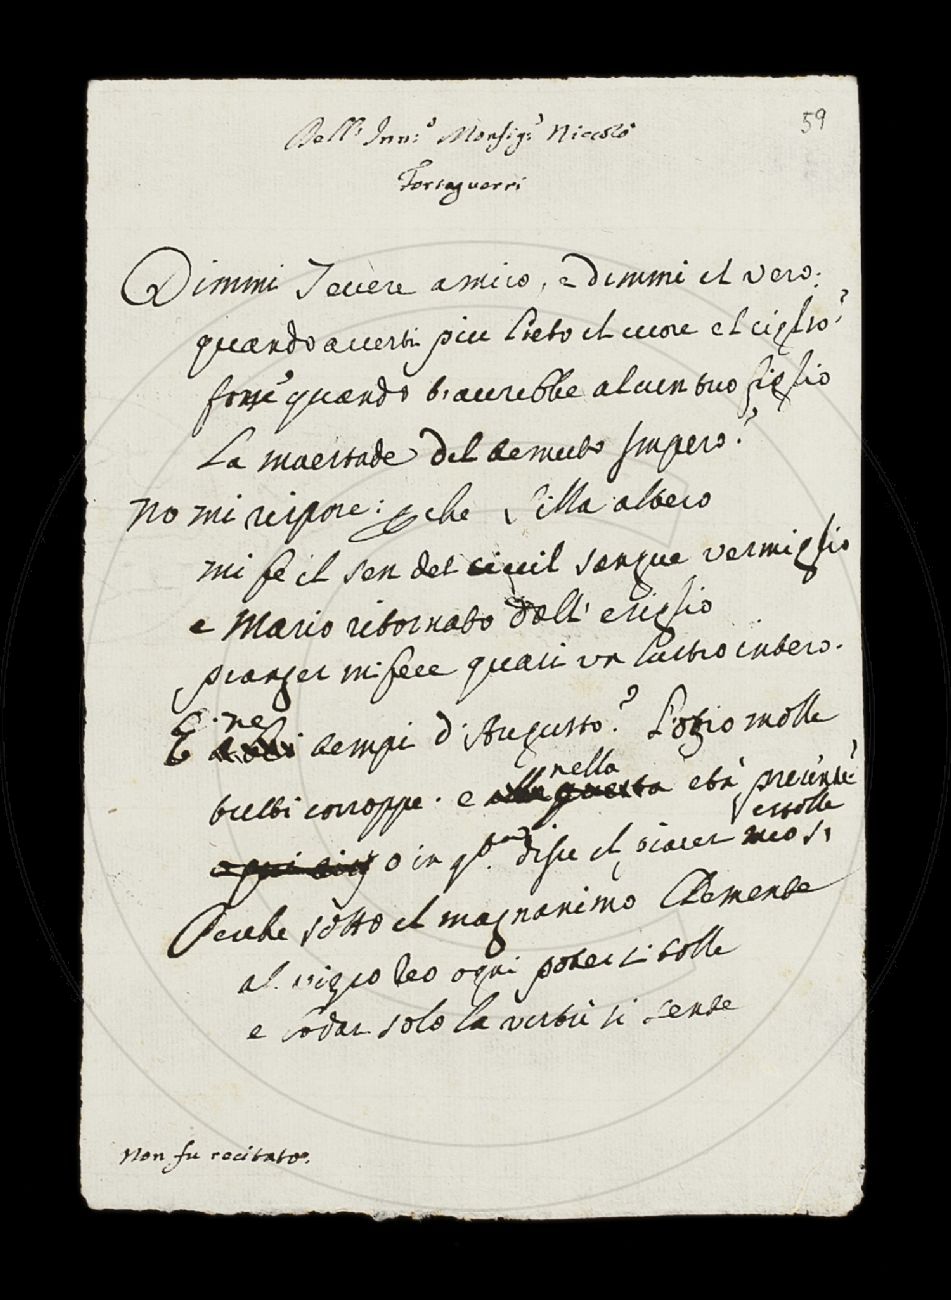 59
Dell' Inn:º Monsig:r Niccolò
Forteguerri
Dimmi Tevere amico, e dimmi il vero:
quando avesti piu lieto il cuore e 'l ciglio?
forse quando t'avrebbe alcun tuo figlio
La maestade del temuto Impero?
No mi rispose: che Silla altero
mi fe il sen del civil sangue vermiglio
e Mario ritornato dall' esiglio
pianger mi fece quasi un lustro intero.
E ne' tempi d'Augusto? L'ozio molle
tutti corroppe. e nella età presente
o in q.ta disse il piacer estolle
Perche sotto il magnanimo Clemente
al vizio reo ogni poter si tolle
e lodar solo la virtù si sente
Non fu recitato.